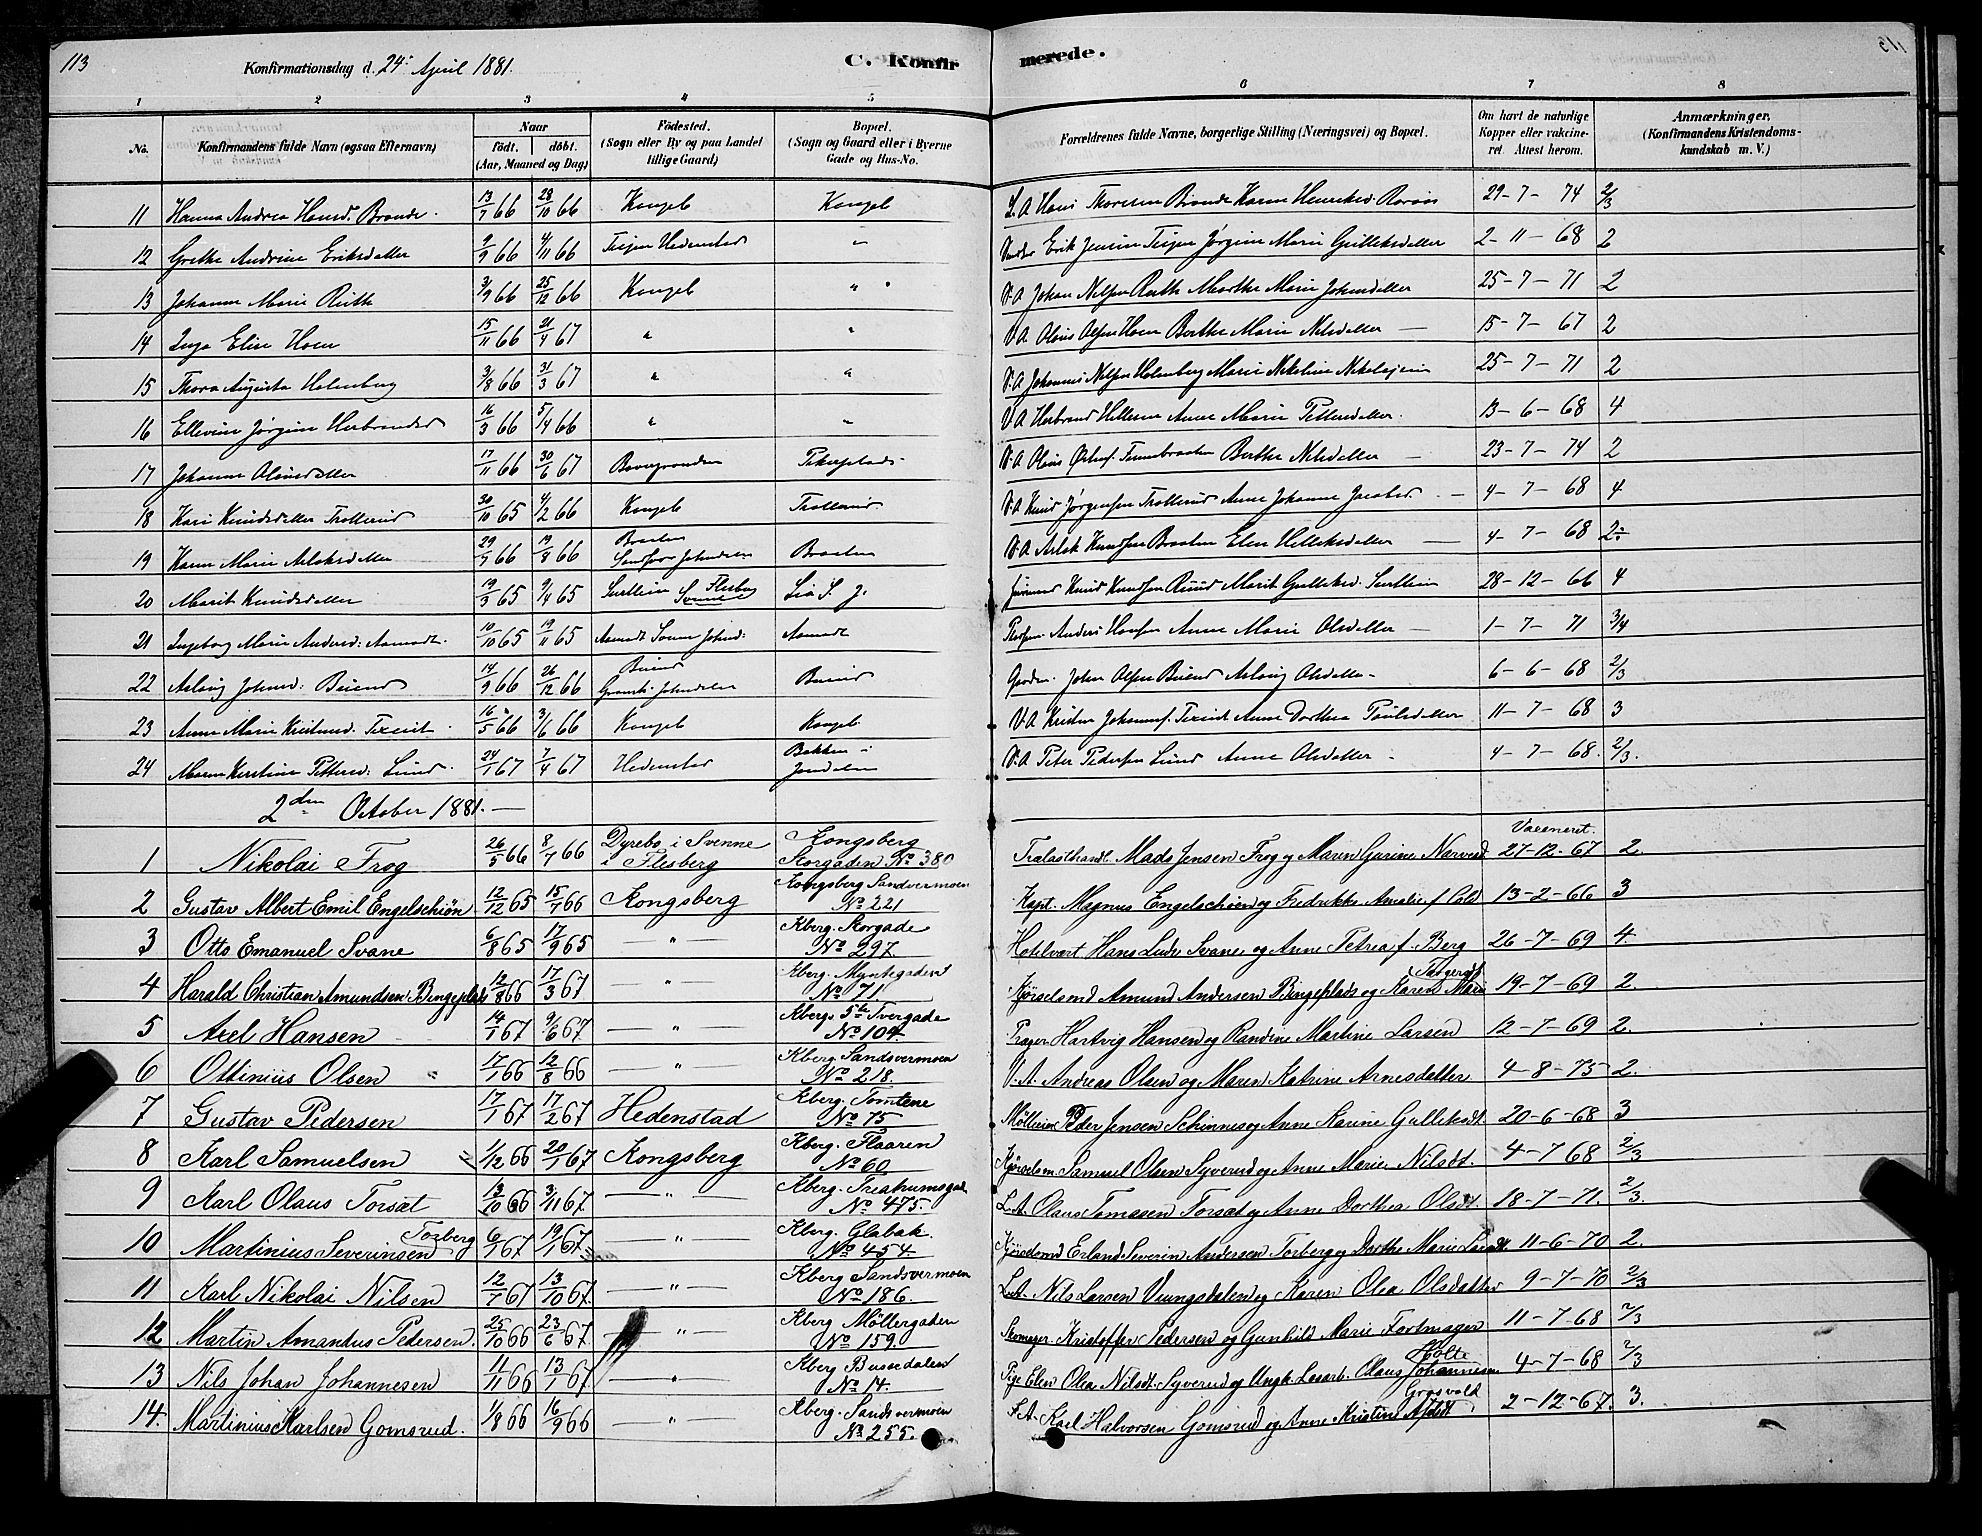 113
Konfirmationsdag d. 24: April 1881.
C. Konfirmerede.
113
1 2 3 4 5 6 7 8
No.
Konfirmandens fulde Navn (ogsaa Efternavn)
Naar
født. døbt.
(Aar, Maaned og Dag)
Fødested.
(Sogn eller By og paa Landet
tillige Gaard)
Bopæl.
(Sogn og Gaard eller i Byerne
Gade og Hus-No.
Forældrenes fulde Navne, borgerlige Stilling (Næringsvei) og Bopæl.
Om havt de naturlige
Kopper eller vakcine-
ret. Attest herom.
Anmærkninger.
(Konfirmandens Kristendoms-
kundskab m. V.)
11 Hanna Andrea Hansd. Brande. 13/7 66 28/10 66 Kongsb Kongsb L.A Hans Thoresen Brande Karen Henriksd. 29-7-74 2/3
12 Grethe Andrine Eriksdatter 9/9 66 4/11 66 Teigen Hedenstad " Erik Jensen Teigen Jørgine Marie Gulleksdatter 2-11-68 2
13 Johanne Marie Ruth 3/9 66 25/12 66 Kongsb " " V.A Johan Nilsen Ruth Marthe Marie Johnsdatter 25-7-71 2
14 Inga Elise Hoen 15/11 66 21/4 67 " " V.A Olaus Olsen Hoen Berthe Marie Nilsdatter — 15-7-67 2
15 Thora Augusta Holmberg 3/8 66 31/3 67 " " V.A Johannes Nilsen Holmberg Marie Nikoline Nikolaisen 25-7-71 2
16 Ellevine Jørgine Herbrandsd 16/3 66 5/4 66 " " V.A Herbrand Hellesen Anne Marie Pettersdatter. 13-6-68 4
17 Johanne Olausdatter 17/11 66 30/6 67 Bævergranden Pikerplads V.A Olaus Tennebraaten Berthe Nilsdatter — 23-7-74 2
18 Kari Knudsdatter Trollerud 30/10 65 4/2 66 Kongsb Trollerud V.A Knud Jørgensen Trollerud Anne Johanne Jacobsd. — 4-7-68 4
19 Karen Marie Aslaksdatter 29/7 66 19/8 66 Braaten
Jondalen Braaten V.A Aslak Knudsen Braaten Elen Helleksdatter — 4-7-68 2:
20 Marit Knudsdatter 19/3 65 9/4 65 Surtlien Flesberg
Svenne Lia S. J. Knud Knudsen Ruud Marit Gulleksd. Surtlien 28-12-66 4
21 Ingeborg Marie Andersd: Aamodt. 10/10 65 19/11 65 Aamodt Aamodt Anders Hansen Anne Marie Olsdatter — 1-7-71 3/4
22 Aslaug Johnsd: Buind 14/9 66 26/12 66 Buind
Jondalen Buind John Olsen Buind Aslaug Olsdatter - 6-6-68 2/3
23 Anne Marie Kristensd. 16/5 66 3/6 66 Kongsb Kongsb V.A Kristen Johannes. Anne Dorthea Poulsdatter 11-7-68 3
24 Maren Kirstine Pettersd: Lund. 24/1 67 7/4 67 Hedenstad Bakken i
Jondalen V.A Peter Pedersen Lund Anne Olsdatter - 4-7-68. 2/3.
2den October 1881. —
Vaccineret.
1 Nikolai Frog 26/5 66 8/7 66 Dyrebo i Svenne
i Flesberg Kongsberg
Storgaden No 380 Trælasthandl. Mads Jensen Frog og Maren Gurine Narverud 27-12-67 2.
2 Gustav Albert Emil Engelschiøn 12/12 65 15/7 66 Kongsberg Kongsberg Sandsvermoen
No 221 Kapt. Magnus Engelschiøn og Fredrikke Amalie f. Cold 13-2-66 3
3 Otto Emanuel Svane 6/8 65 17/9 65 — " — Kberg. Storgade
No 297. Hotelvært Hans Ludv Svane og Anne Petrea f. Berg 26-7-69 4.
4 Harald Christian Amundsen Bingeplads 12/8 66 17/3 67 — " — Kberg. Myntegaden
No 71. Kjørselsmd Amund Andersen Bingeplads og Karen Marie Torgersd 19-7-69 2.
5 Axel Hansen 14/1 67 9/6 67 — " — Kberg. 5te Tvergade
No 104. Hartvig Hansen og Randine Martine Larsen 12-7-69 2.
6 Ottinius Olsen 17/1 66 12/8 66 — " — Kberg. Sandsvermoen
No 218. V.A. Andreas Olsen og Maren Katrine Arnesdatter 4-8-75 2.
7 Gustav Pedersen 17/1 67 17/2 67 Hedenstad Kberg. Tomtene
No 75 Peder Jensen Schinnes og Anne Karine Gulleksdt. 20-6-68 3
8 Karl Samuelsen 1/12 66 20/1 67 Kongsberg Kberg. Flaaren
No 60. Kjørselsm. Samuel Olsen Syverud og Anne Marie Nilsdt. 4-7 68 2/3
9 Karl Olaus Torsæt 13/10 66 3/11 67. — " — Kberg. Theatrumsgade
No 475. L.A. Olaus Tomasen Torsæt og Anne Dorthea Olsdt. 18-7-71. 2/3
10 Martinius Severinsen Torberg 6/1 67 19/1 67. — " — Kberg. Glabak.
No 454 Kjørselsmd Erland Severin Andersen Torberg og Dorthe Marie Larsdt. 11-6-70 2.
11 Karl Nikolai Nilsen 12/7 67 13/10 67. — " — Kberg Sandsvermoen
No 186. L.A. Nils Larsen Veungsdalen og Karen Olea Olsdatter 9-7-70 2/3
12 Martin Amandus Pedersen. 25/10 66 23/6 67. — " — Kberg Møllergaden
No 159. Skomager. Kristoffer Pedersen og Gunhild Marie Fortmager 11-7-68 2/3
13 Nils Johan Johannesen 4/11 66 13/1 67. — " — Kberg Bussedalen
No 14. Pige Elen Olea Nilsdt. Syverud og Ungk. Løsarb. Olaus Johannesen Holte 4-7-68 2/3
14. Martinius Karlsen Gomsrud. 1/8 66 16/9 66 — " — Kberg. Sandsvermoen
No 255. F.A. Karl Halvorsen Gomsrud og Anne Kristine Grosvold 2-12-67. 3.